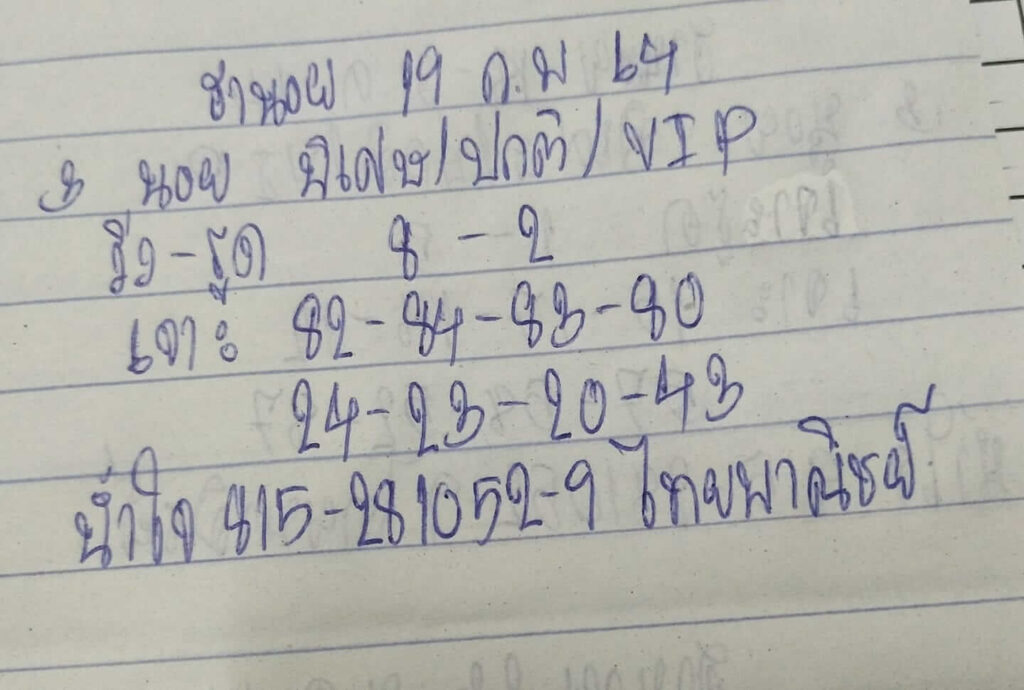 ฮานอย 19 ก.พ 64
3 นอย พิเศษ/ปกติ/VIP
วิ่ง-รูด 8-2
เจาะ 82-84-83-80
24-23-20-43
น้ำใจ 815-281052-9 ไทยพาณิชย์